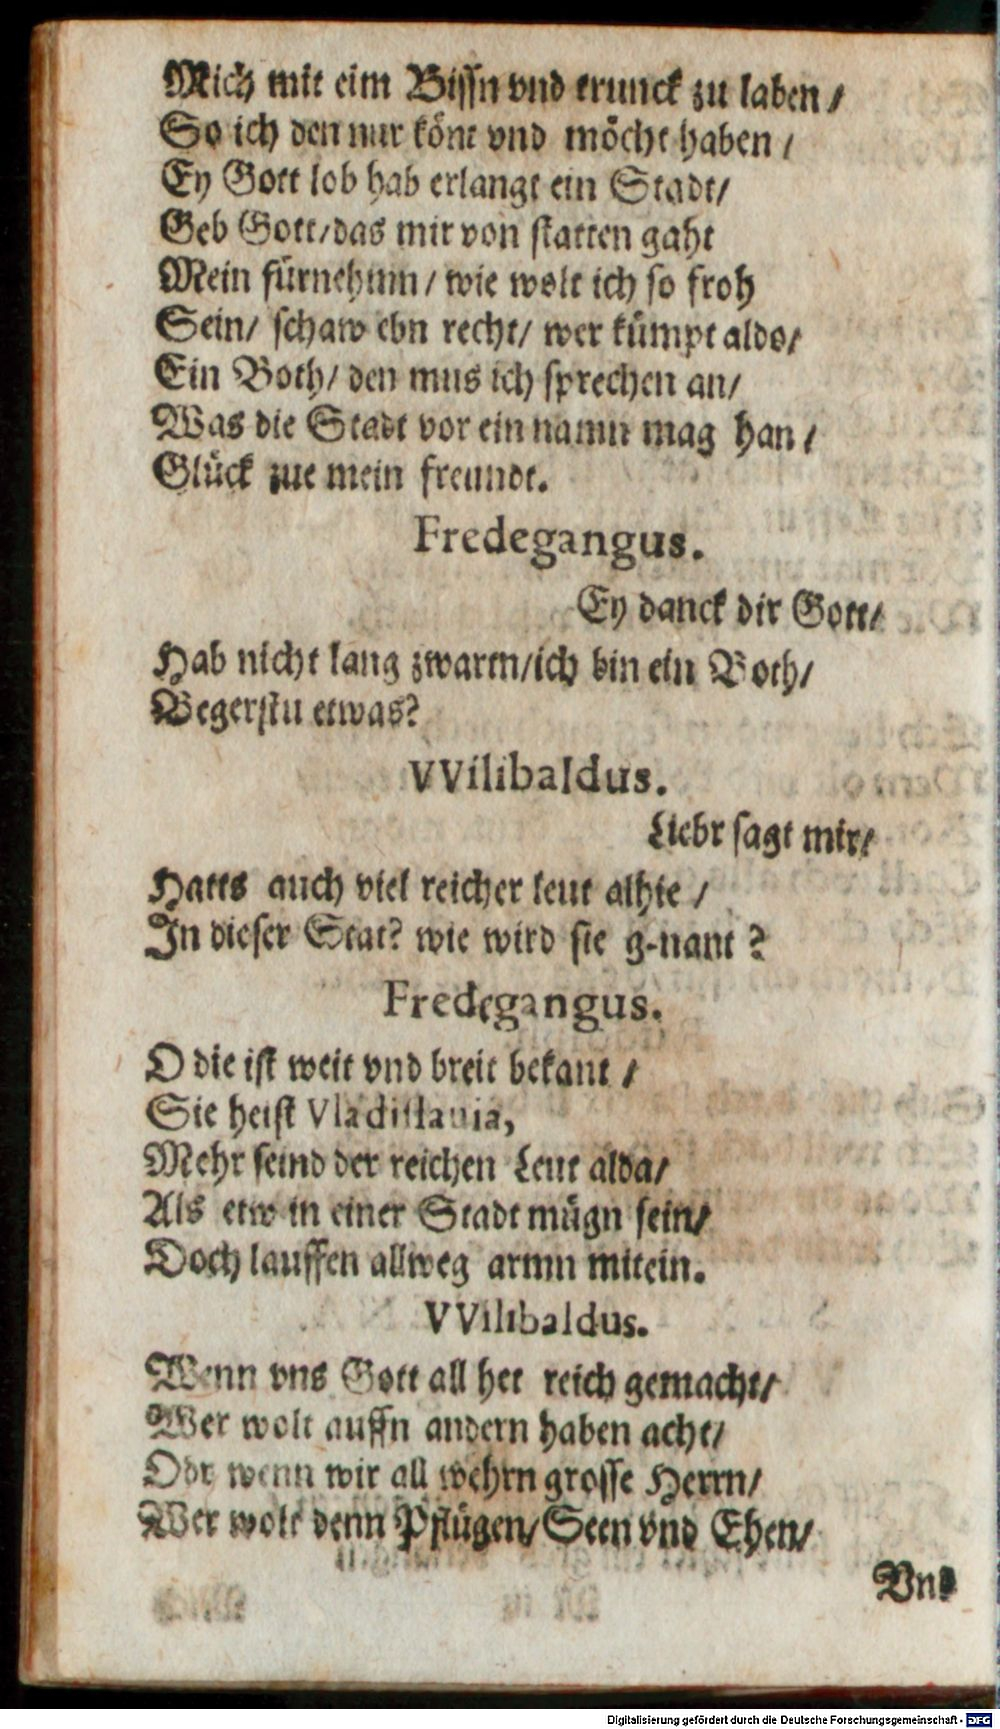 Mich mit eim Bissn vnd trunck zu laben /
So ich den nur könt vnd möcht haben /
Ey Gott lob hab erlangt ein Stadt/
Geb Gott/das mir von statten gaht
Mein fürnehmn / wie wolt ich so froh
Sein/ schaw ebn recht/ wer kümpt aldo/
Ein Both/ den mus ich sprechen an/
Was die Stadt vor ein namn mag han /
Glück zue mein freundt.
Fredegangus.
Ey danck dir Gott/
Hab nicht lang zwartn/ich bin ein Both/
Begerstu etwas?
VVilibaldus.
Liebr sagt mir/
Hatts auch viel reicher leut alhie /
In dieser Stat? wie wird sie g-nant ?
Fredegangus.
O die ist weit vnd breit bekant /
Sie heist Vladislauia,
Mehr seind der reichen Leut alda/
Als etw in einer Stadt mügn sein/
Doch lauffen allweg armn mitein.
VVilibaldus.
Wenn vns Gott all het reich gemacht/
Wer wolt auffn andern haben acht/
Odr wenn wir all wehrn grosse Herrn/
Wer wolt denn Pflügen/ Seen vnd Ehen/
Vnd
Digitalisierung gefördert durch die Deutsche Forschungsgemeinschaft - DFG